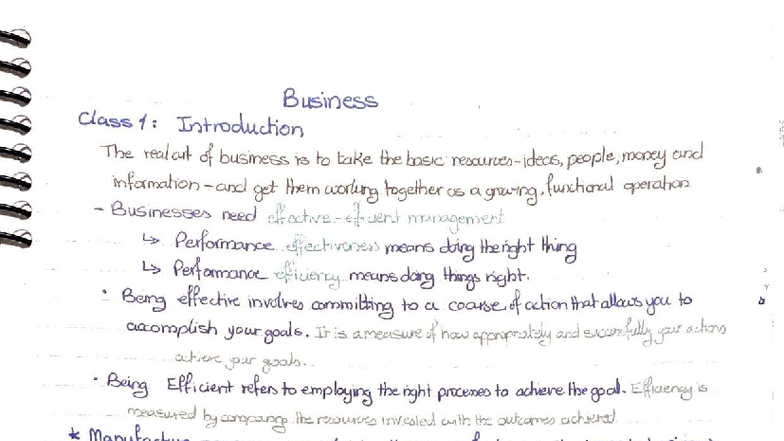 Business
Class 1: Introduction
The real art of business is to take the basic resources - ideas, people, money and
information - and get them working together as a growing, functional operation
- Businesses need effective - efficient management
↳ Performance effectiveness means doing the right thing
↳ Performance efficiency means doing things right.
• Being effective involves committing to a coarse of action that allows you to
accomplish your goals. It is a measure of how appropriately and successfully your actions
achieve your goals.
• Being Efficient refers to employing the right processes to achieve the goal. Efficiency is
measured by comparing the resources invested with the outcomes achieved.